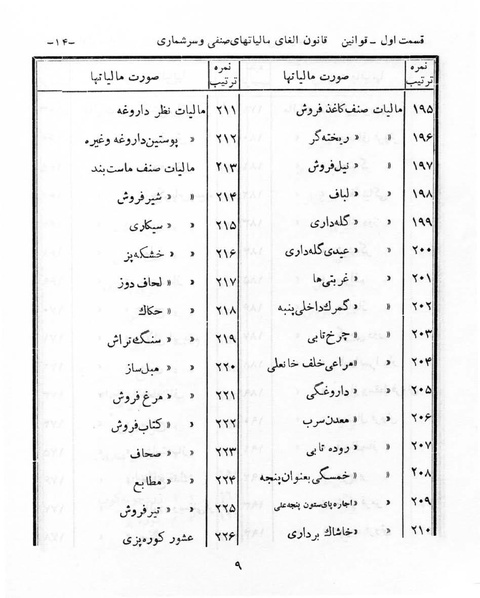 قسمت اول ـ قوانین   قانون الغای مالیاتهای صنفی و سرشماری   -۱۴-
نمره ترتیب   صورت مالیاتها
۱۹۵   مالیات صنف کاغذ فروش
۱۹۶   » » ریخته‌گر
۱۹۷   » » نیل فروش
۱۹۸   » » لباف
۱۹۹   » » گله‌داری
۲۰۰   » » عیدی گله‌داری
۲۰۱   » » غربتی‌ها
۲۰۲   » » گمرك داخلی پنبه
۲۰۳   » » چرخ تابی
۲۰۴   » » مراعی خلف خانعلی
۲۰۵   » » داروغگی
۲۰۶   » » معدن سرب
۲۰۷   » » روده تابی
۲۰۸   » » خمسگی بعنوان پنجه
۲۰۹   » » اجاره پای ستون پنجه علی
۲۱۰   » » خاشاك برداری
نمره ترتیب   صورت مالیاتها
۲۱۱   مالیات نظر داروغه
۲۱۲   » » پوستین داروغه وغیره
۲۱۳   مالیات صنف ماست بند
۲۱۴   » » شیر فروش
۲۱۵   » » سیکاری
۲۱۶   » » خشکه‌پز
۲۱۷   » » لحاف دوز
۲۱۸   » » حكاك
۲۱۹   » » سنگ تراش
۲۲۰   » » مبل ساز
۲۲۱   » » مرغ فروش
۲۲۲   » » کتاب فروش
۲۲۳   » » صحاف
۲۲۴   » » مطابع
۲۲۵   » » تیر فروش
۲۲۶   عشور کوره‌پزی
۹